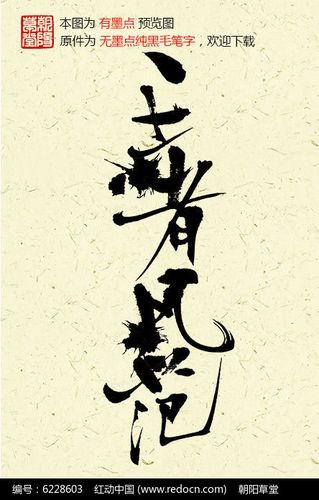 朝陽草堂
本图为 有墨点 预览图
原件为 无墨点纯黑毛笔字，欢迎下载
王者风范
编号：6228603 红动中国 (www.redocn.com) 朝阳草堂